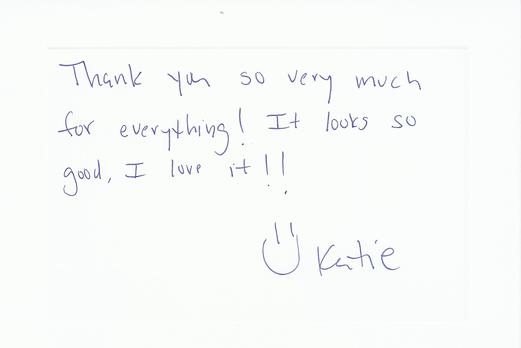 Thank you so very much
for everything! It looks so
good, I love it!!
Katie